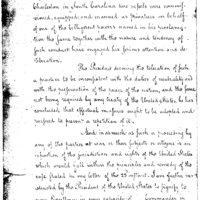 Charleston in South Carolina two vessels were commis-
sioned, equipped and manned as privateers on behalf
of one of the belligerent powers named in his declara-
tion the same together with the nature and tendency of
such conduct have engaged his serious attention and de-
liberation.
The President deeming the toleration of such
a practice to be incompatible with the duties of neutrality and
with the preservation of the peace of the nation, and the same
not being required by any treaty of the United States, he has
concluded, that effectual means ought to be adopted and
respect to prevent a repetition of it.
And in as much as such a proceeding by
any of the parties at war, or their subjects or citizens is an
of the jurisdiction and rights of the United States
which would fall within the and remedy of the
case stated by my letter of the inst. I am further ins-
tructed by the President of the United States to signify to
your in your capacity of Commander in